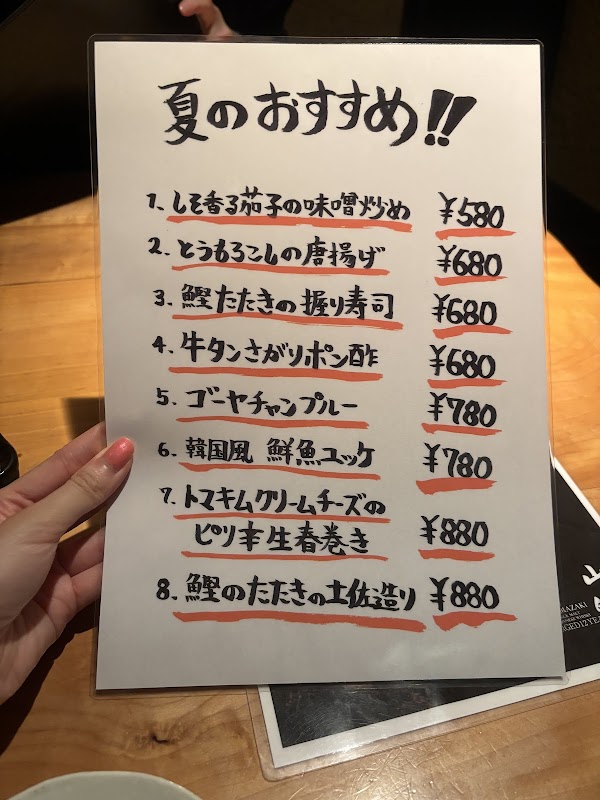 夏のおすすめ!!
1. しそ香る茄子の味噌炒め ¥580
2. とうもろこしの唐揚げ ¥680
3. 鰹たたきの握り寿司 ¥680
4. 牛タンさがりポン酢 ¥680
5. ゴーヤチャンプルー ¥780
6. 韓国風 鮮魚ユッケ ¥780
7. トマキムクリームチーズの
ピリ辛生春巻き ¥880
8. 鰹のたたきの土佐造り ¥880
山